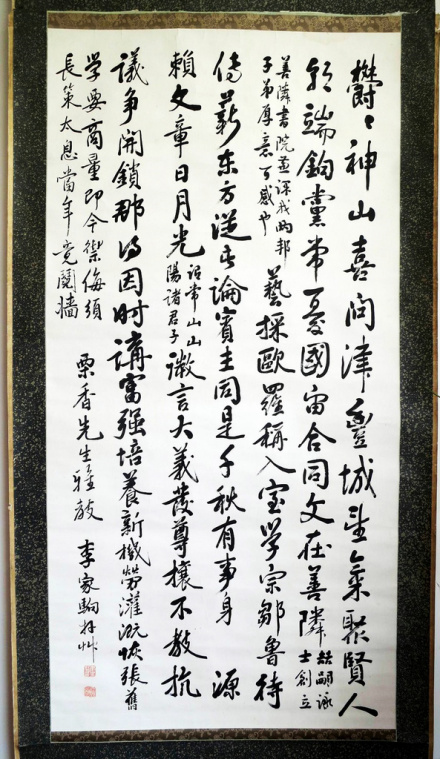 欝〻神山喜問津豐城望氣聚賢人
端鉤黨常憂國宙合同文在善隣
嗣詠
士創立
善隣書院並課我兩邦
子弟厚意可感也
藝採歐羅稱入室学宗鄒魯待
傳薪东方從古論賓主同是千秋有事身 源
賴文章日月光
謂常山山
陽諸君子
微言大義護尊攘不教抗
議爭開鎖那得因时講富强培養新機勞灌溉恢張舊
学要商量即今禦侮須
長策太息當年竟鬩牆
栗香先生雅教 李家駒拜艸